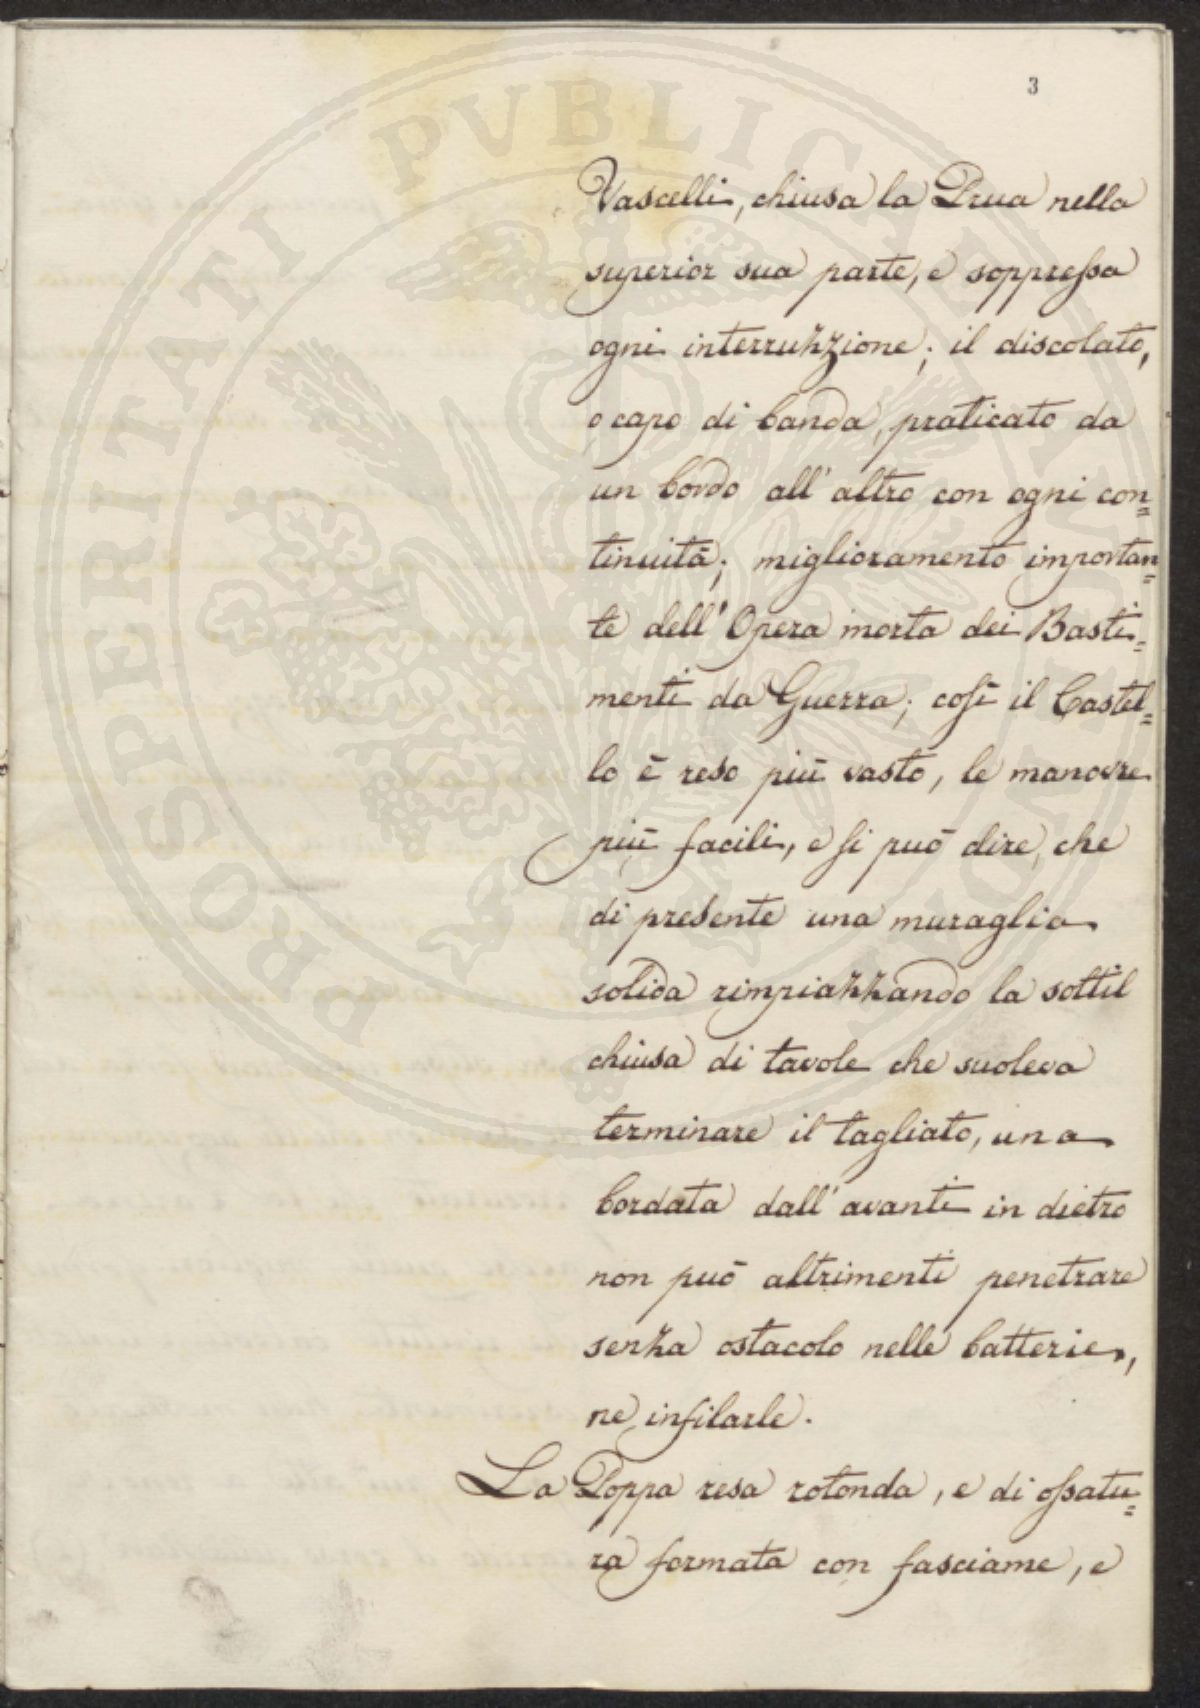 3
Vascelli, chiusa la Prua nella
superior sua parte, e soppressa
ogni interruzzione; il discolato,
o capo di banda, praticato da
un bordo all' altro con ogni con=
tinuità; miglioramento importan=
te dell' Opera morta dei Basti=
menti da Guerra; così il Castel=
lo è reso più vasto, le manovre
più facili, e si può dire, che
di presente una muraglia
solida rimpiazzando la sottil
chiusa di tavole che suoleva
terminare il tagliato, una
bordata dall' avanti in dietro
non può altrimenti penetrare
senza ostacolo nelle batterie,
ne infilarle.
La Poppa resa rotonda, e di ossatu=
ra formata con fasciame, e
PROSPERITATI PUBLICAE